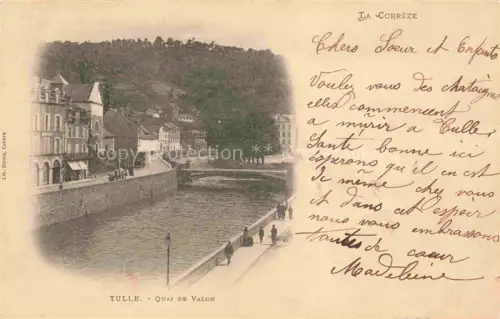 LA CORRÈZE
Chers Sœur et Enfants
Voulez vous des chataignes
elles commencent
a mûrir a Tulle,
Sante bonne ici
esperons qu'il en est
de même chez vous
et dans cet espoir
nous vous embrassons
toutes de cœur
Madeleine
copyright
TULLE. - QUAI DE VALON